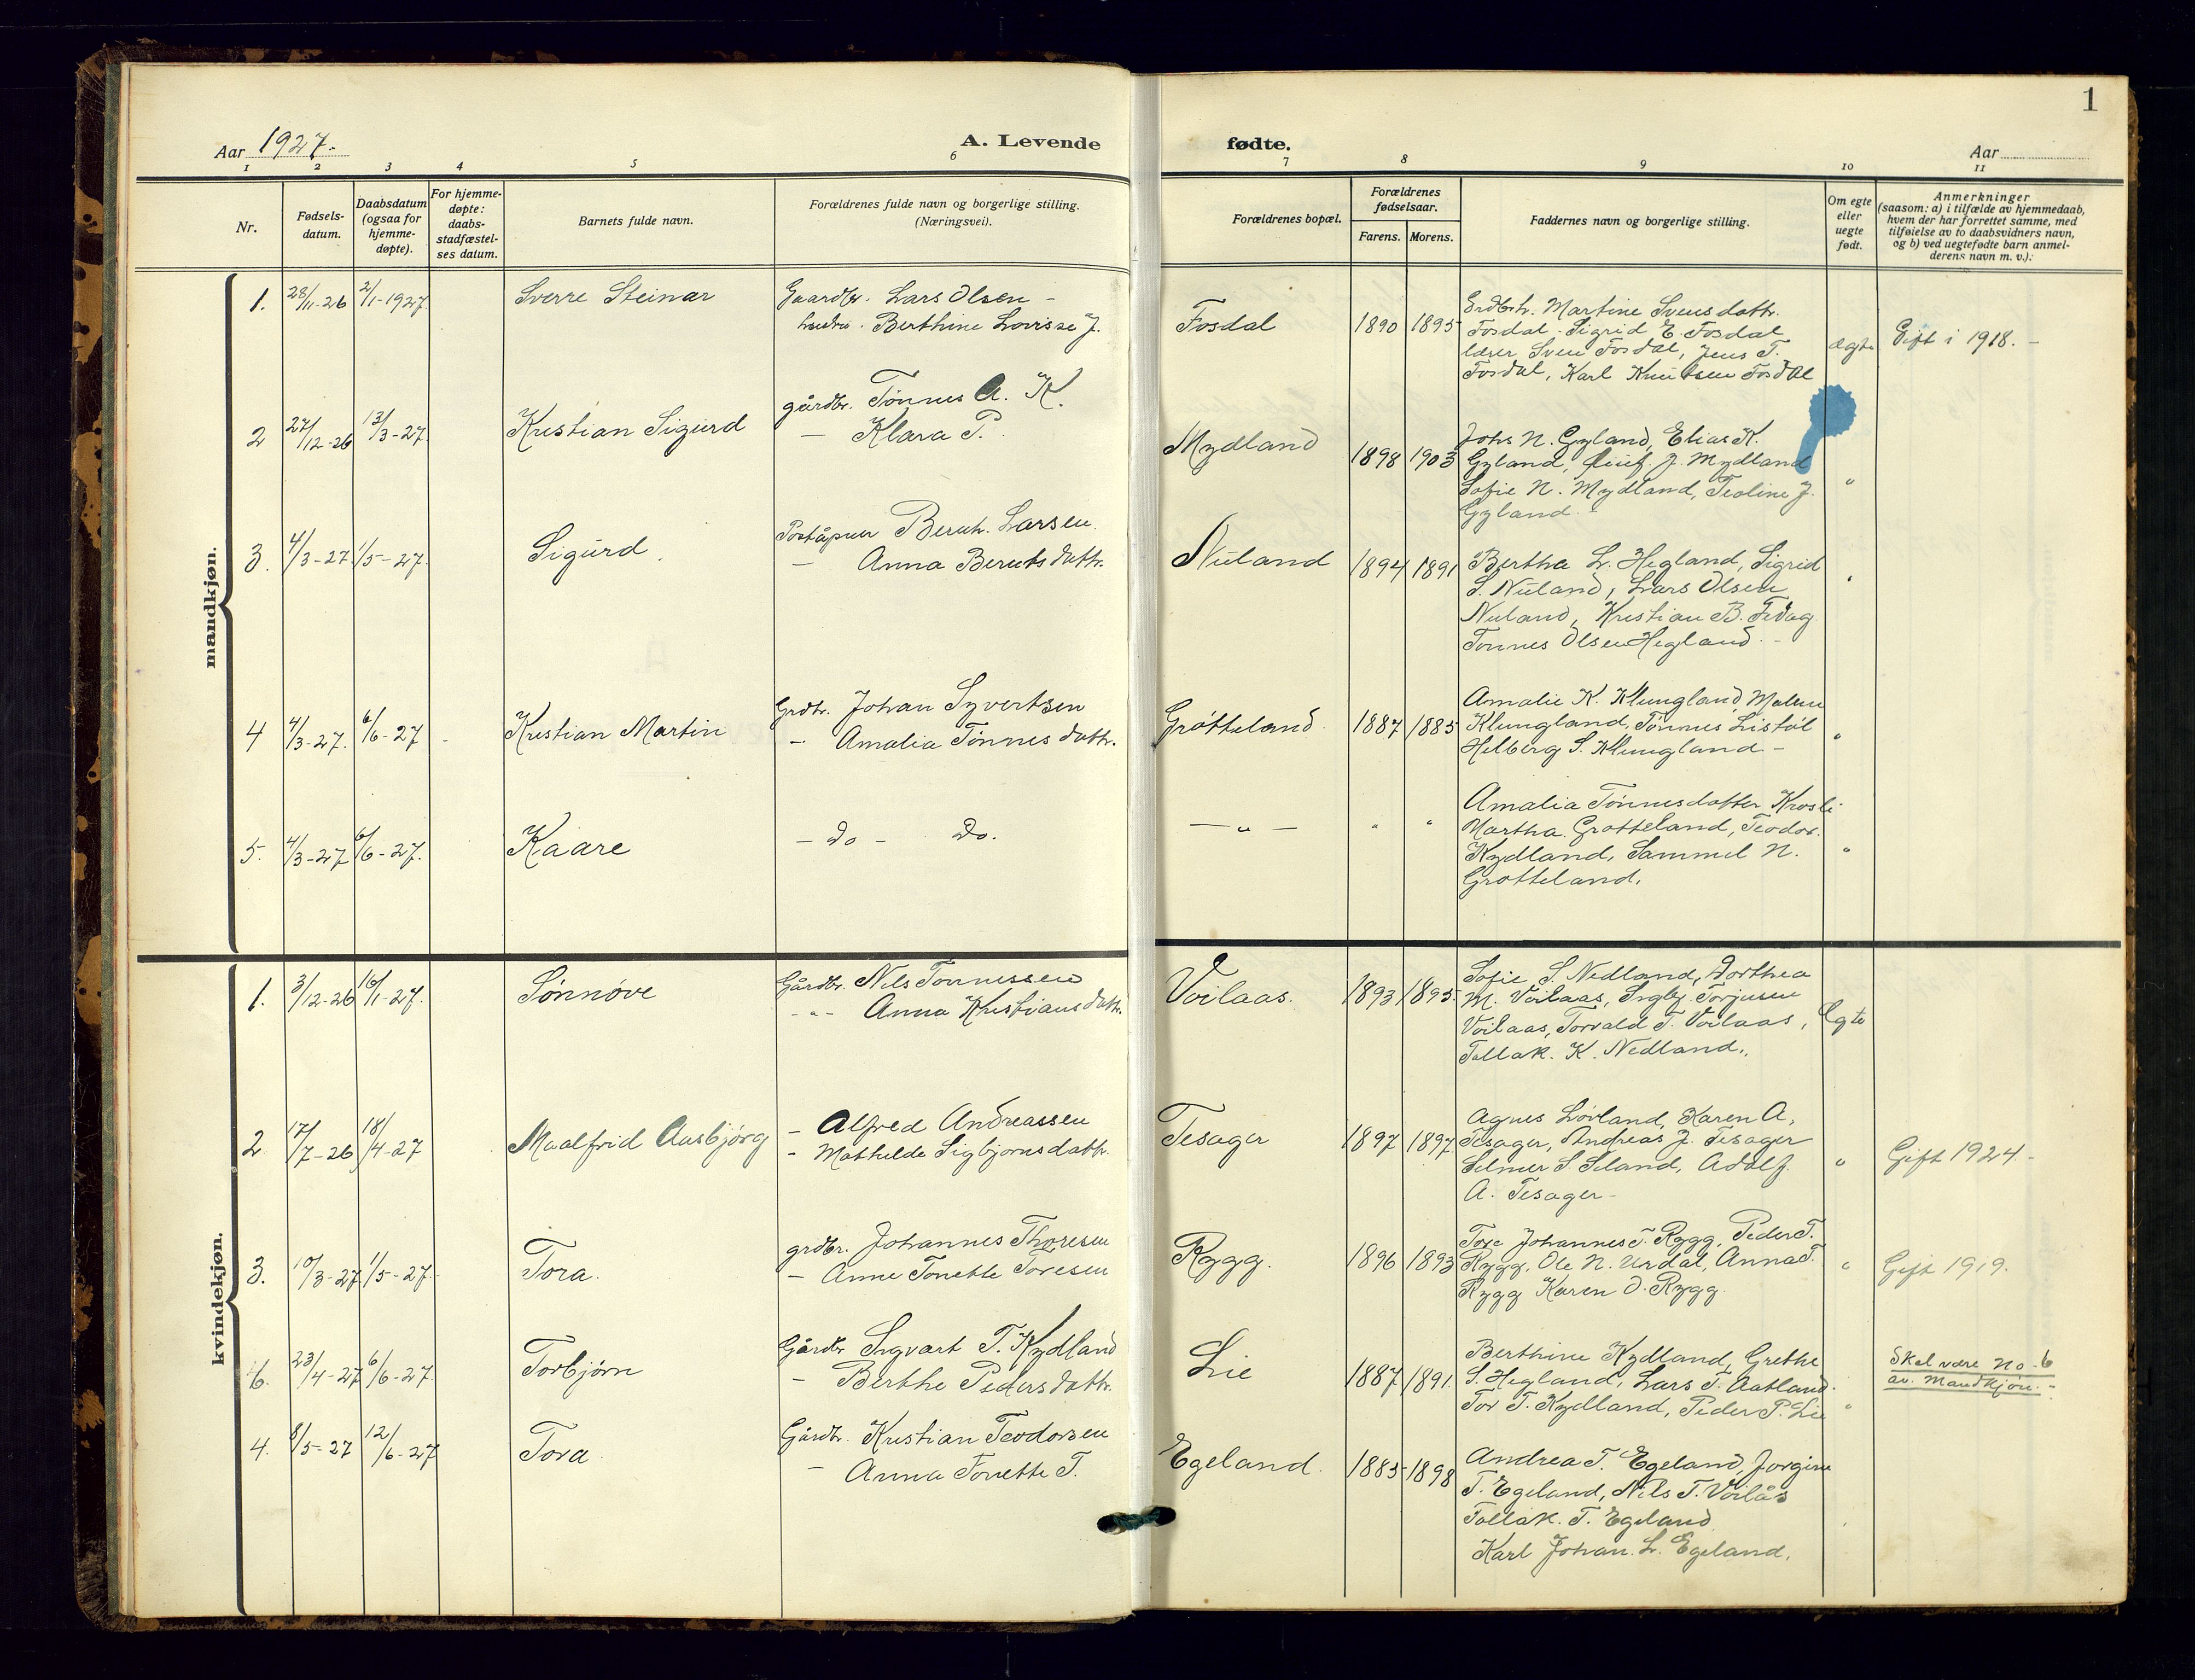 1
Aar 1927.
A. Levende
fødte.
Aar
1 2 3 4 5 6 7 8 9 10 11
Nr.
Fødsels-
datum.
Daabsdatum
(ogsaa for
hjemme-
døpte).
For hjemme-
døpte:
daabs-
stadfæstel-
ses datum.
Barnets fulde navn.
Forældrenes fulde navn og borgerlige stilling.
(Næringsvei).
Forældrenes bopæl.
Forældrenes
fødselsaar.
Farens. Morens.
Faddernes navn og borgerlige stilling.
Om egte
eller
uegte
født.
Anmerkninger
(saasom: a) i tilfælde av hjemmedaab,
hvem der har forrettet samme, med
tilføielse av to daabsvidners navn,
og b) ved uegtefødte barn anmel-
derens navn m. v.):
mandkjøn.
1. 28/11-26 2/1-1927. Sverre Steinar
Gaardbr. Lars Olsen -
Berthine Lovisse J.
Fosdal 1890 1895
Grdbrh. Martine Svensdattr.
Fosdal. Sigrid E. Fosdal
lærer Sven Fosdal, Jens T.
Fosdal, Karl Knutsen Fosdal
ægte Gift i 1918. -
2 27/12-26 13/3-27 Kristian Sigurd
gårdbr. Tønnes A. K.
- Klara P.
Mydland 1898 1903
Johs N. Gyland, Elias K.
Gyland, J. Mydland
Sofie N. Mydland, Teoline J.
Gyland.
"
3. 4/3-27 1/5-27. Sigurd.
Poståpner Bernh. Larsen.
- Anna Berntsdattr.
Nuland 1894 1891
Bertha L. Hegland, Sigrid
S. Nuland, Lars Olsen
Nuland, Kristian B. Fedag
Tønnes Olsen Hegland. -
"
4 4/3-27. 6/6-27 - Kristian Martin
Grdbr. Johan Syvertsen
- Amalia Tønnesdattr.
Grøtteland. 1887 1885
Amalie K. Klungland, Malene
Klungland, Tønnes Listøl
Helberg S. Klungland -
"
5. 4/3-27 6/6-27. Kaare
- do - Do.
- " - " "
Amalia Tønnesdatter Krosli
Martha Grøtteland, Teodor.
Kydland, Sammel N.
Grøtteland.
"
kvindekjøn.
1. 3/12-26 16/1-27. Sønnøve
Gårdbr. Nils Tønnessen
- " - Anna Kristiansdattr.
Voilaas. 1893 1895.
Sofie S. Nedland, Dorthea
M. Voilaas, Ingbj. Torjusen
Voilaas, Torvald T. Voilaas,
Tallak. K. Nedland.
Egte
2 17/7-26 18/4-27 Maalfrid Aasbjørg
- Alfred Andreassen
- Mathilde Sigbjørnsdattr.
Tesager 1897 1897
Agnes Løvland, Karen A.
Tesager, Andreas J. Tesager
Selmer S. Seland, Adolf
A. Tesager -
" Gift 1924 -
3. 10/3-27 1/5-27 Tora.
grdbr. Johannes Thoresen
- Anne Tonette Toresen
Rygg. 1896 1893
Tore Johannes T. Rygg, Peder T.
Rygg, Ole N. Urdal, Anna T.
Rygg Karen O. Rygg.
" Gift 1919.
6. 23/4-27 6/6-27. Torbjørn
Gårdbr Ingvart T. Kydland
- Berthe Pedersdattr.
Lie 1887 1891
Berthine Kydland, Grethe
S. Hegland, Lars T. Aatland.
Tor T. Kydland, Peder P. Lie
"
Skal være No. 6
av. Mandkjøn. -
4. 8/5-27 12/6-27 Tora.
Gårdbr. Kristian Teodorsen
- Anna Tonette T.
Egeland. 1885 1898
Andrea T. Egeland, Jorgine
T. Egeland, Nils T. Voilås
Tallak. T. Egeland
Karl Johan. L. Egeland.